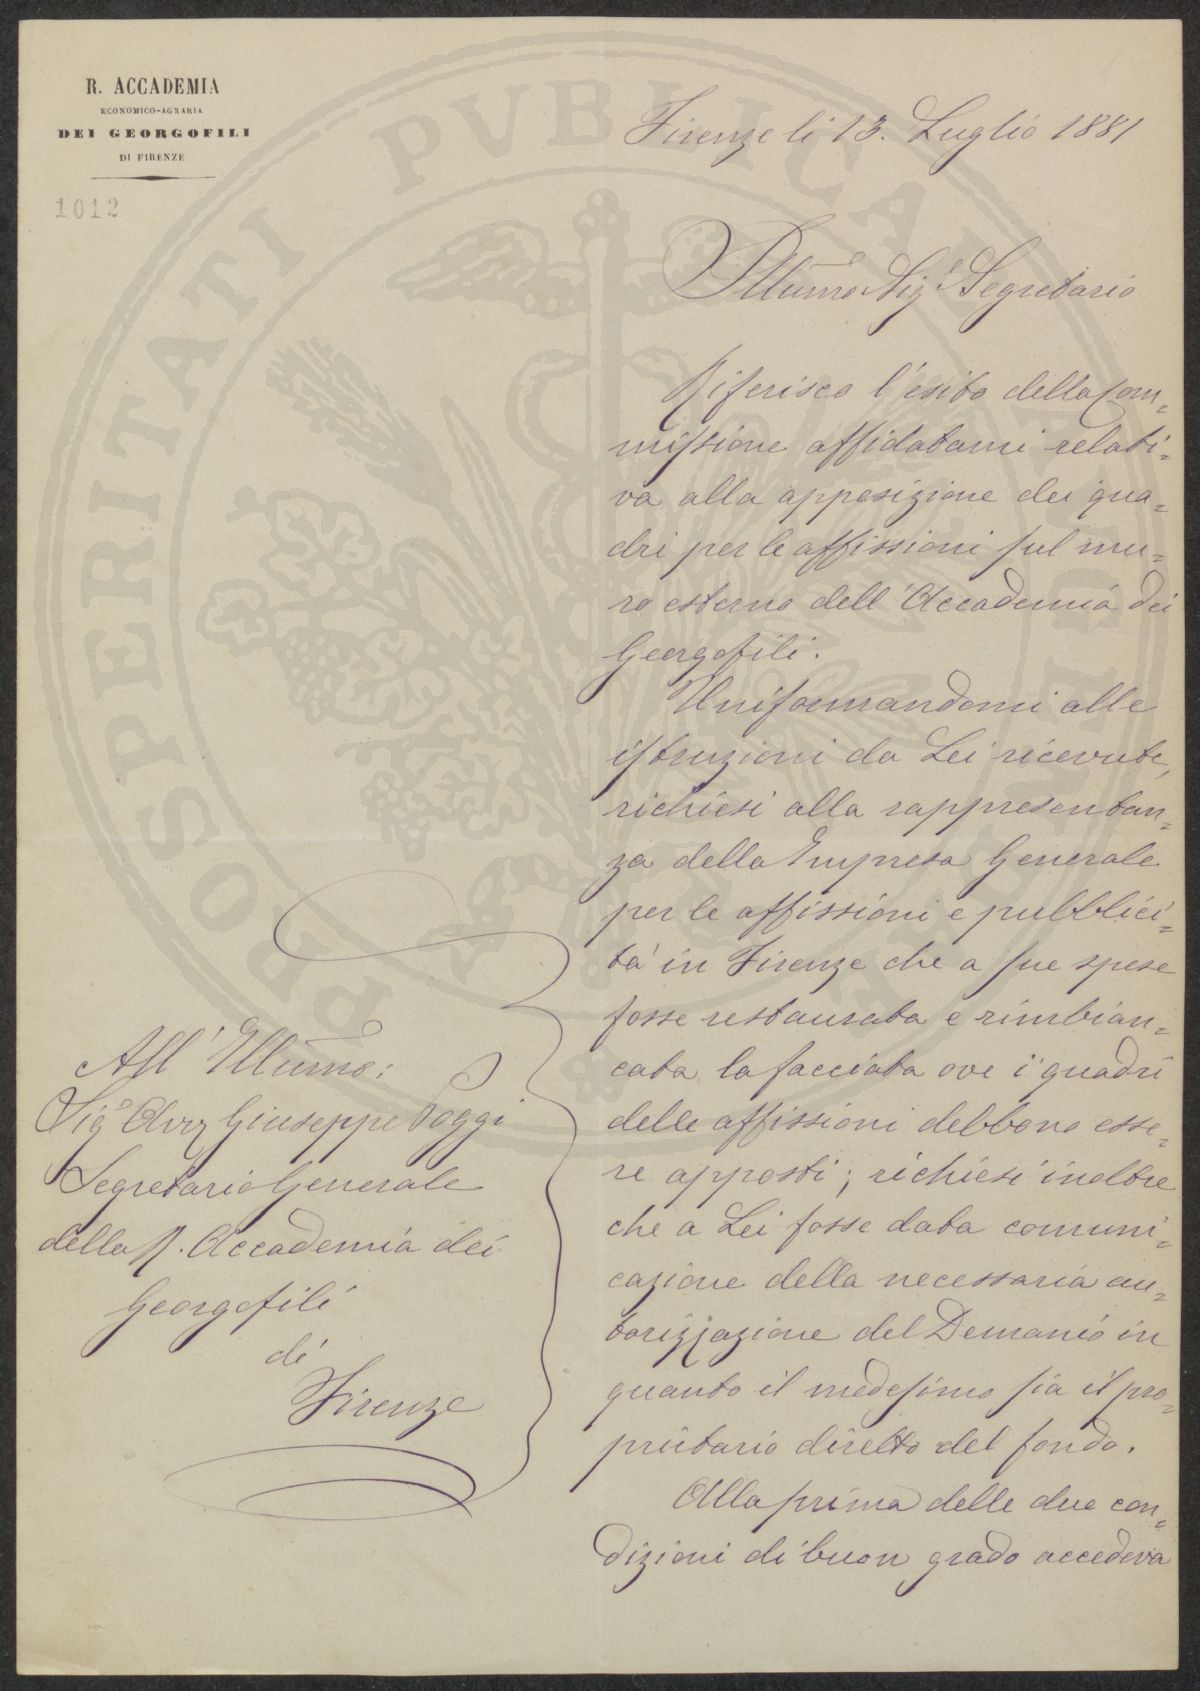 R. ACCADEMIA
ECONOMICO-AGRARIA
DEI GEORGOFILI
DI FIRENZE
1012
Firenze li 13. Luglio 1881
Illumo Sigr Segretario
Riferisco l'esito della Com=
missione affidatami relati=
va alla apposizione dei qua=
dri per le affissioni sul mu=
ro esterno dell'Accademia dei
Georgofili.
Uniformandomi alle
istruzioni da Lei ricevute,
richiesi alla rappresentan=
za della Impresa Generale
per le affissioni e pubblici=
tà in Firenze che a sue spese
fosse restaurata e rimbian=
cata la facciata ove i quadri
delle affissioni debbono esse=
re apposti; richiesi inoltre
che a Lei fosse data comuni=
cazione della necessaria au=
torizzazione del Demanio in
quanto il medesimo sia il pro=
prietario diretto del fondo.
Alla prima delle due con=
dizioni di buon grado accedeva
All'Illumo:
Sigr Avv Giuseppe Poggi
Segretario Generale
della R. Accademia dei
Georgofili
di
Firenze
PROSPERITATI PVBLICAE AVGENDAE